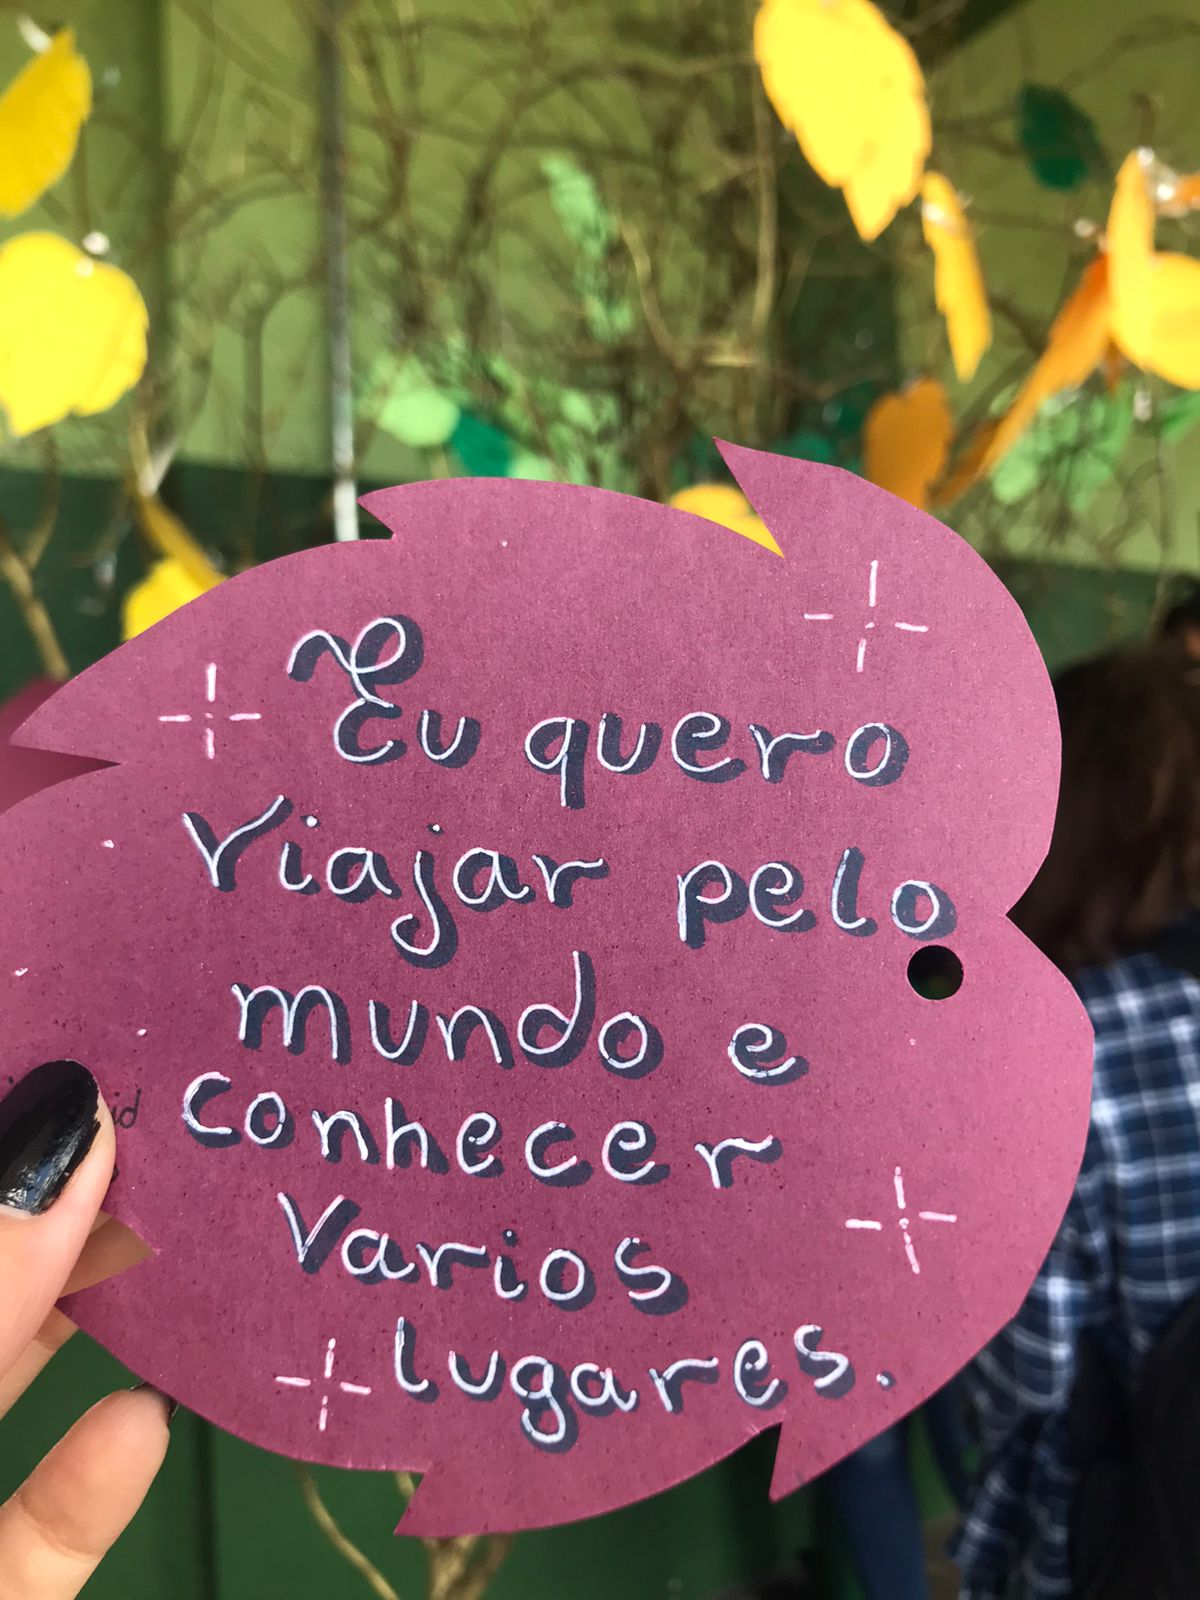 Eu quero
Viajar pelo
mundo e
Conhecer
Varios
lugares.